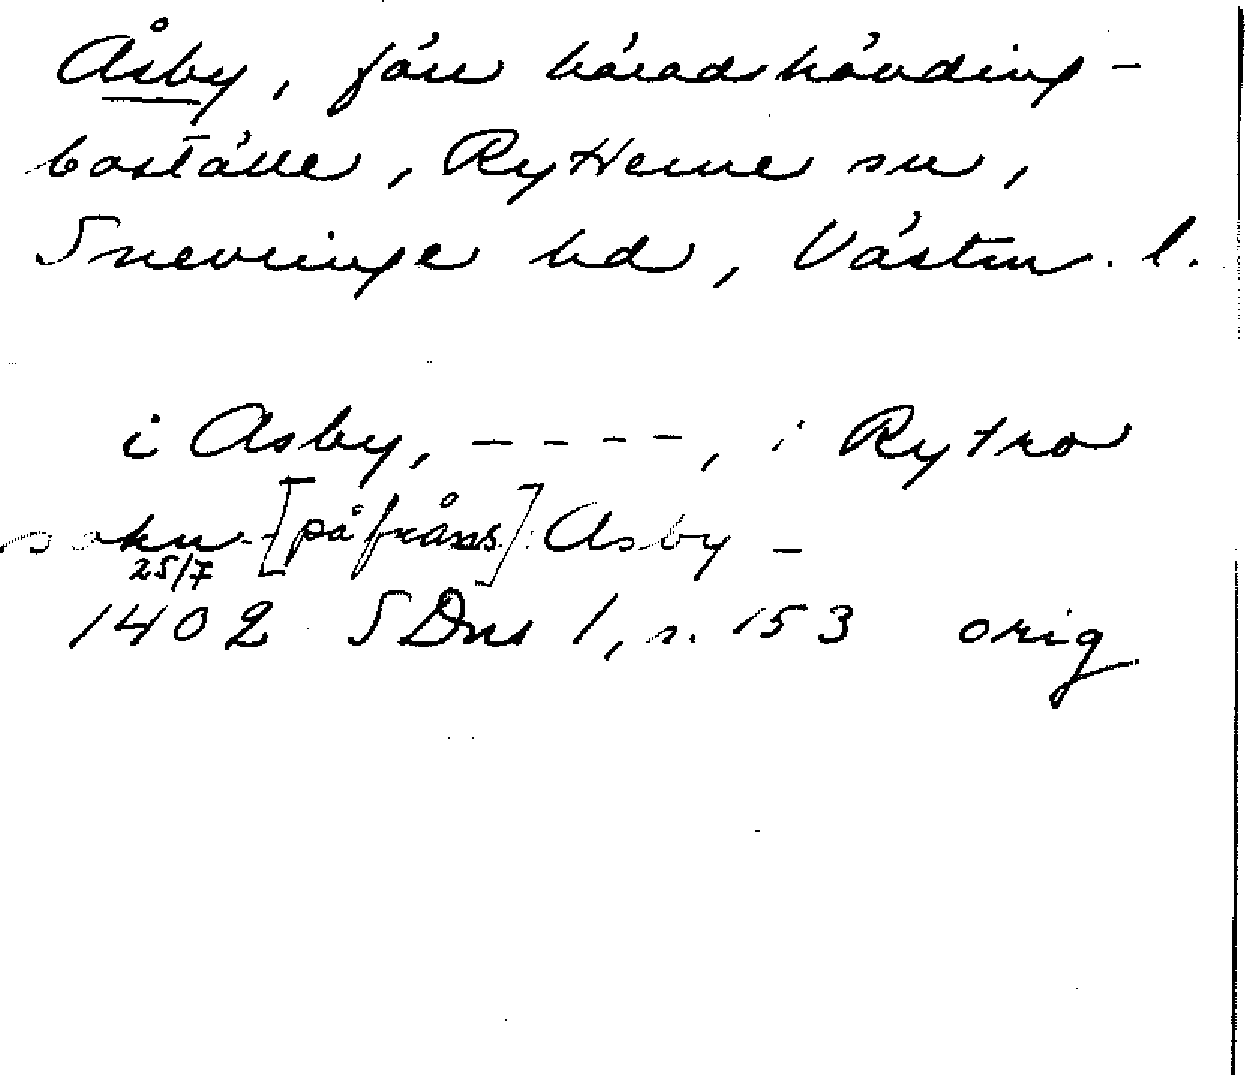 Åsby, före häradshövding-
boställe, Rytterne sn,
Snevringe hd, Västm. l.
i Asby, - - - -, i Rytro
sokn [på fråns.]: Asby -
25/7
1402 SDns 1, s. 153 orig